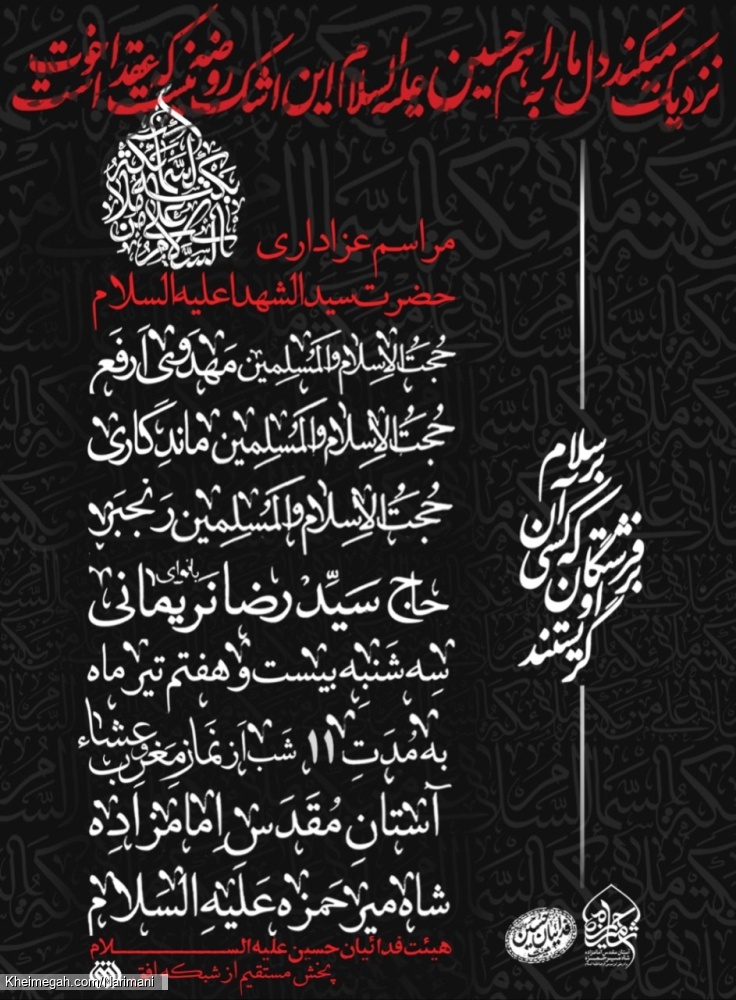 نزدیک میکند دل ما را به هم حسین علیه السلام این اشک روضه نیست که عقد اخوت است
السلام علی من بکته ملائکة السماء
مراسم عزاداری
حضرت سیدالشهدا علیه السلام
حُجَتُ الاِسلام وَالمُسلِمین مَهدَوی اَرفَع
حُجَتُ الاِسلام وَالمُسلِمین ماندِگاری
حُجَتُ الاِسلام وَالمُسلِمین رَنجبَر
بانوای
حاج سَیِّد رضا نَریمانی
سِه شَنبِه بیست و هفتم تیر ماه
به مُدَتِ ۱۱ شَب اَز نَمازِ مَغرِب و عِشاء
آستانِ مُقَدَسِ اِمامزاده
شاه میر حمزه عَلَیهِ السَلام
هیئت فدائیان حسین علیه الســـلام
پخش مستقیم از شبکه افق
بر سلام
آن
کسی که
فرشتگان
بر او
گریستند
فدائیان حسین
آستان مقدس امامزاده
شاه میر حمزه
Kheimegah.com/Narimani